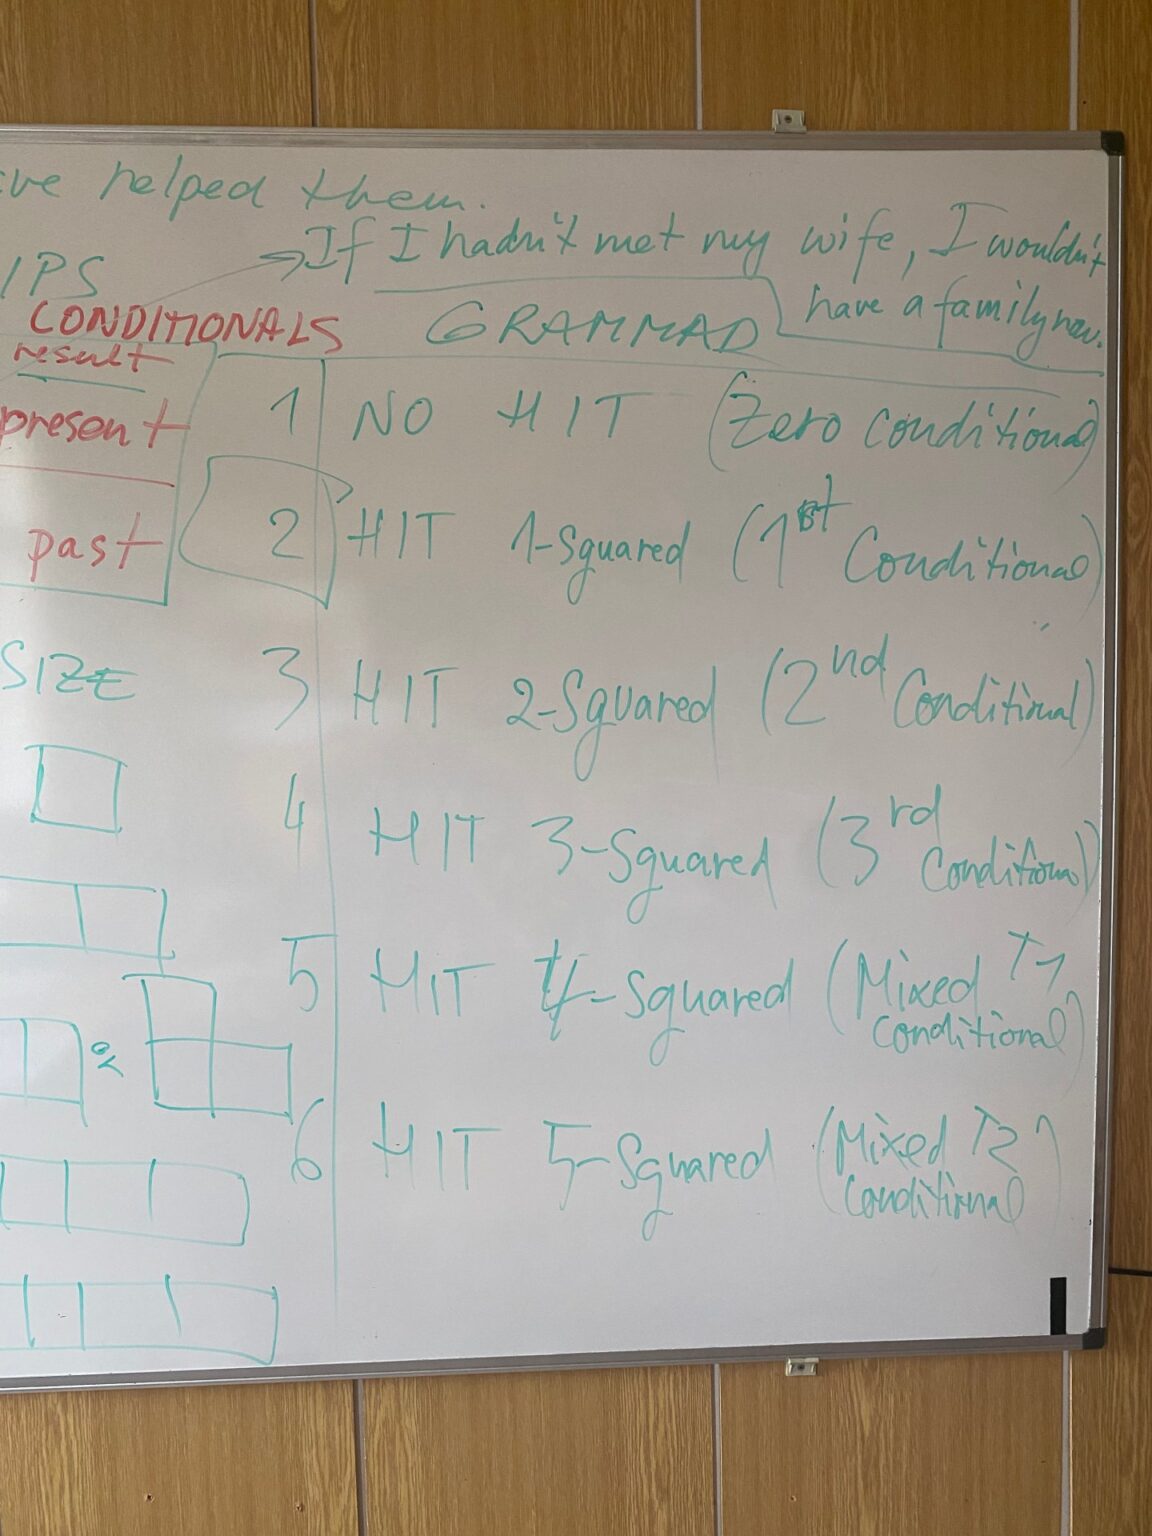 helped them.
If I hadn't met my wife, I wouldn't
have a family now.
/PS
CONDITIONALS
GRAMMAD
result
present
1 NO HIT (Zero conditional)
past
2 HIT 1-Squared (1st Conditional)
SIZE
3 HIT 2-Squared (2nd Conditional)
4 HIT 3-Squared (3rd
Conditional)
5 HIT 4-Squared (Mixed T1
conditional)
or
6 HIT 5-Squared (Mixed T2)
conditional